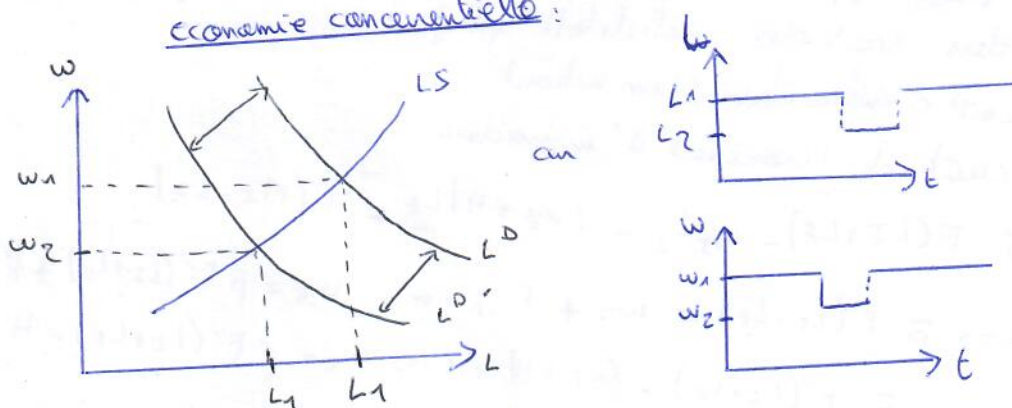 économie concurentielle :
w
LS
w1
w2
L^D
L^D'
L1
L1
L
car
L
L1
L2
t
w
w1
w2
t